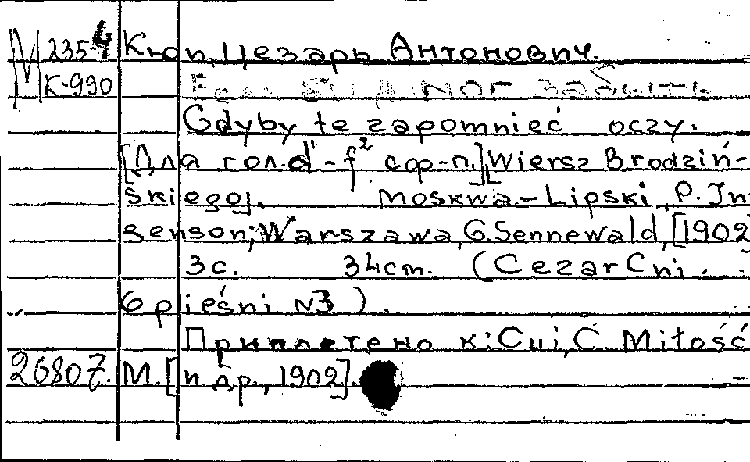 М 235-4 Кюи, Цезарь Антонович.
К-990 Если б я мог забыть
Gdyby te zapomnieć oczy.
[Для гол. d'-f² с ф-п.] Wiersz Brodziń-
skiego. Moskwa-Lipski, P. Jur
genson; Warszawa, G. Sennewald, [1902
3с. 34cm. (Cezar Cui.
6 pieśni N3).
Приплетено к: Cui, C. Miłość
26807. M. [и др., 1902].